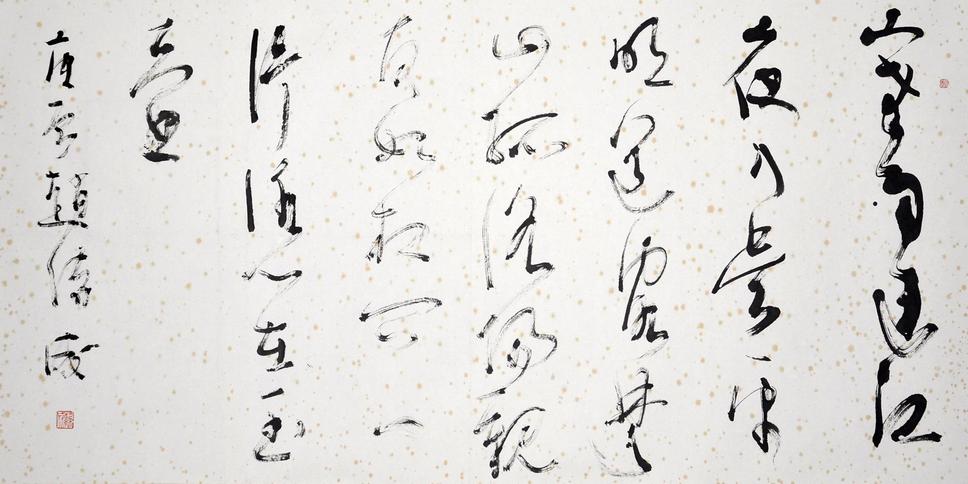 寒雨連江
夜入吳平
明送客楚
山孤洛陽親
友如相問一
片冰心在玉
壺
趙